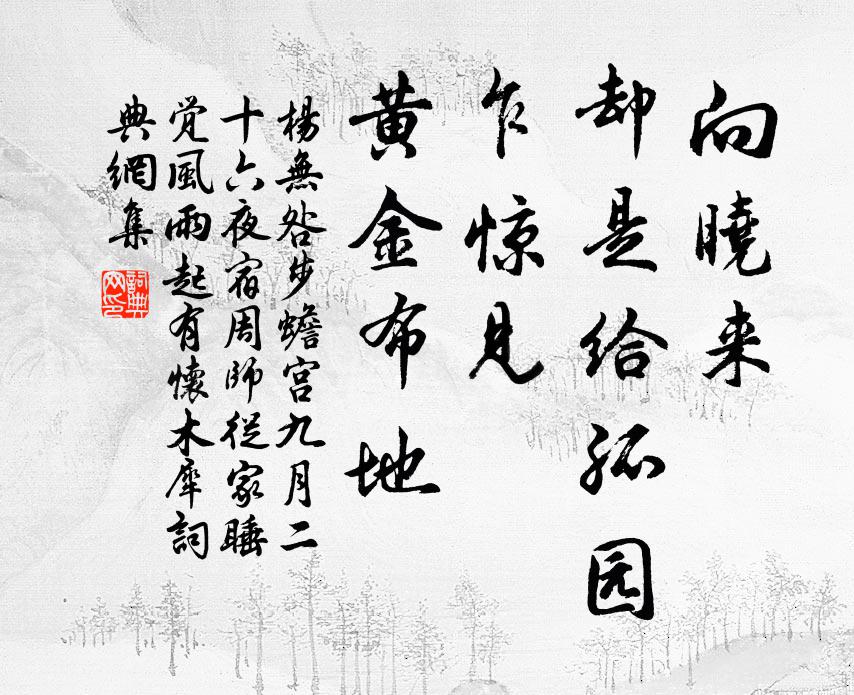 向曉来
却是给孤园
乍惊見
黃金布地
楊無咎步蟾宮九月二
十六夜宿周師從家睡
覺風雨起有懷木犀詞
典網集
詞典
网印